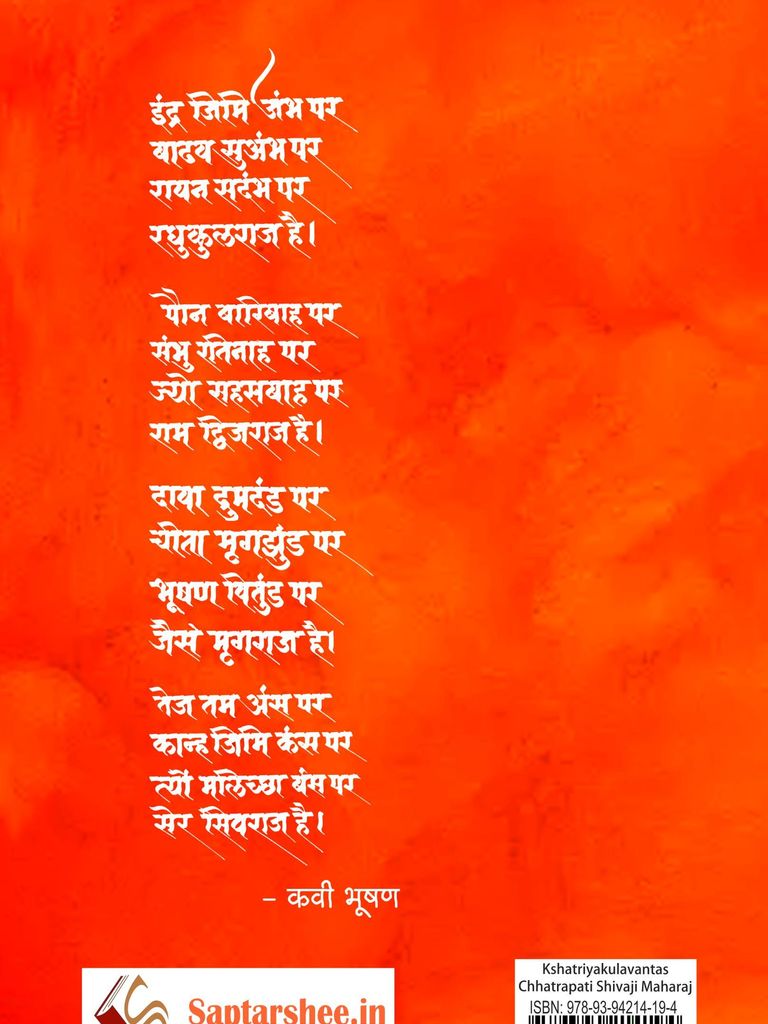 इंद्र जिमि जंभ पर
वाढव सुअंभ पर
रावन सदंभ पर
रघुकुलराज है।
पौन वारिवाह पर
संभु रतिनाह पर
ज्यों सहसवाह पर
राम द्विजराज है।
दावा द्रुमदंड पर
चीता मृगझुंड पर
भूषण वितुंड पर
जैसे मृगराज है।
तेज तम अंस पर
कान्ह जिमि कंस पर
त्यों मलिच्छ बंस पर
सेर सिवराज है।
– कवी भूषण
Saptarshee.in
Kshatriyakulavantas
Chhatrapati Shivaji Maharaj
ISBN: 978-93-94214-19-4